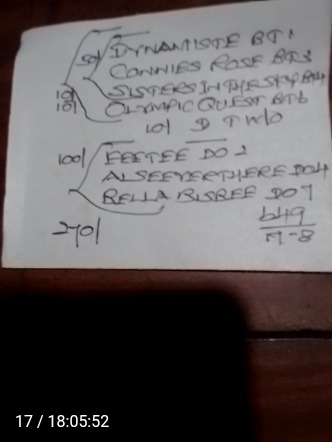 50/ DYNAMISTE BT1
CONNIES ROSE BT3
10/ SISTERS IN THE SKY BT4
10/ OLYMPIC QUEST BT6
10/ D T
100/ EEETEE DO 2
ALSEEYERTHERE DO4
BELLA BISBEE DO7
270/
649
7-8
17 / 18:05:52